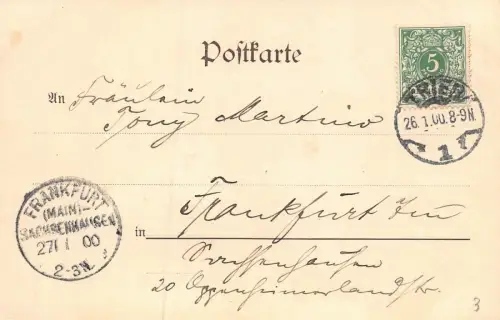 Postkarte
5
TRIER
26.1.00.8-9N.
1
An Fräulein
Tony Martino
FRANKFURT
(MAIN)-
SACHSENHAUSEN
27 1 00
2-3N.
in Frankfurt
Sachsenhausen
20 Oppenheimerlandstr.
3